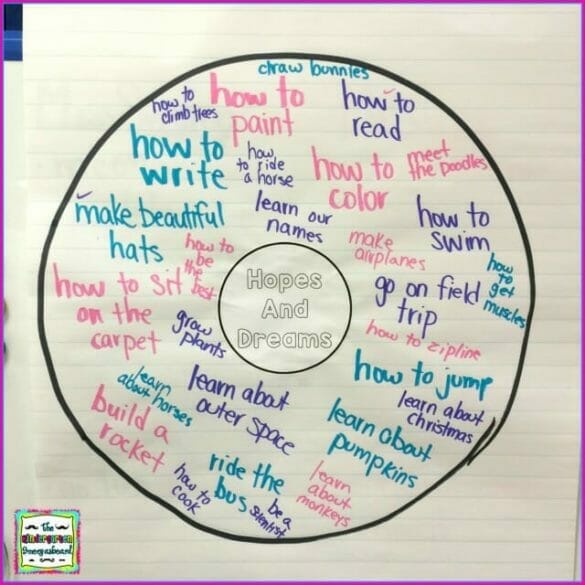 draw bunnies
how to
climb trees
how to
paint
how to
read
how to
write
how
to ride
a horse
how to
color
meet
the poodles
make beautiful
hats
learn our
names
how to
swim
make
airplanes
how to
be
the
best
how to sit
on the
carpet
Hopes
And
Dreams
go on field
trip
how
to
get
muscles
grow
plants
how to zipline
how to jump
learn
about horses
learn about
outer space
learn about
christmas
build a
rocket
learn about
pumpkins
how to
cook
ride the
bus
be a
learn
about
monkeys
the
kindergarten
smorgasboard